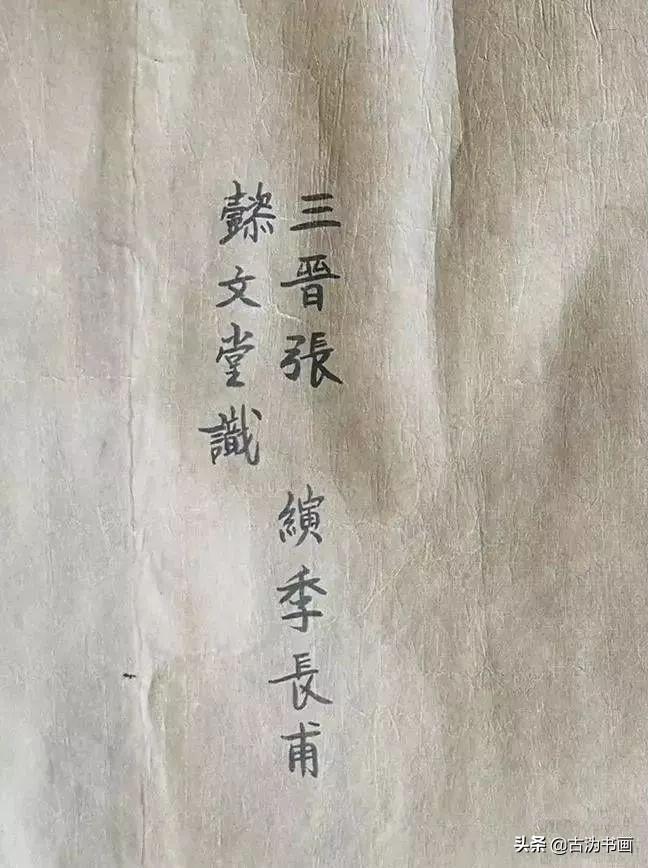 三晉張 縯季長甫
懿文堂識
头条 @古沩书画